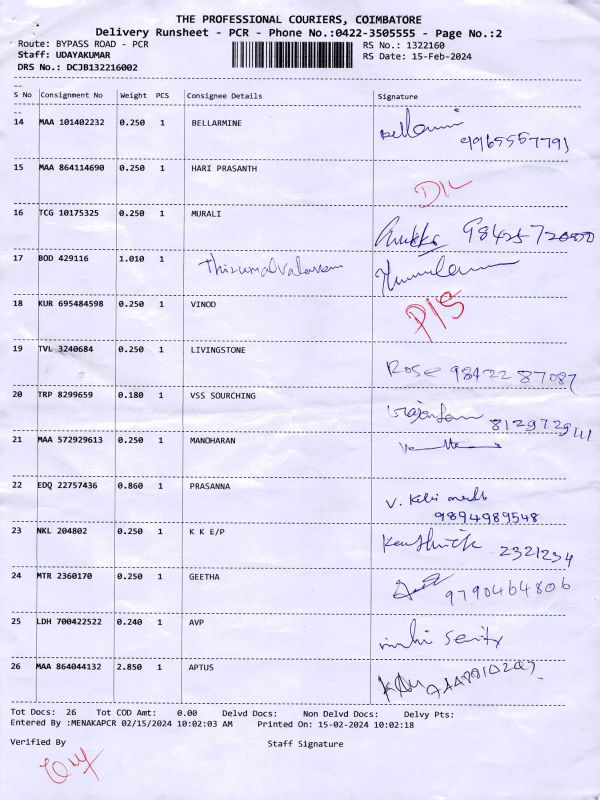 THE PROFESSIONAL COURIERS, COIMBATORE
Delivery Runsheet - PCR - Phone No.:0422-3505555 - Page No.:2
Route: BYPASS ROAD - PCR RS No.: 1322160
Staff: UDAYAKUMAR RS Date: 15-Feb-2024
DRS No.: DCJB132216002
S No Consignment No Weight PCS Consignee Details Signature
14 MAA 101402232 0.250 1 BELLARMINE
15 MAA 864114690 0.250 1 HARI PRASANTH
D/L
16 TCG 10175325 0.250 1 MURALI
17 BOD 429116 1.010 1 Thirumalvalavan
18 KUR 695484598 0.250 1 VINOD
P/S
19 TVL 3240684 0.250 1 LIVINGSTONE
Rose 98422 87087
20 TRP 8299659 0.180 1 VSS SOURCHING
21 MAA 572929613 0.250 1 MANOHARAN
22 EDQ 22757436 0.860 1 PRASANNA
9894989548
23 NKL 204802 0.250 1 K K E/P
Kaushick 2321234
24 MTR 2360170 0.250 1 GEETHA
9790464806
25 LDH 700422522 0.240 1 AVP
26 MAA 864044132 2.850 1 APTUS
Tot Docs: 26 Tot COD Amt: 0.00 Delvd Docs: Non Delvd Docs: Delvy Pts:
Entered By :MENAKAPCR 02/15/2024 10:02:03 AM Printed On: 15-02-2024 10:02:18
Verified By Staff Signature